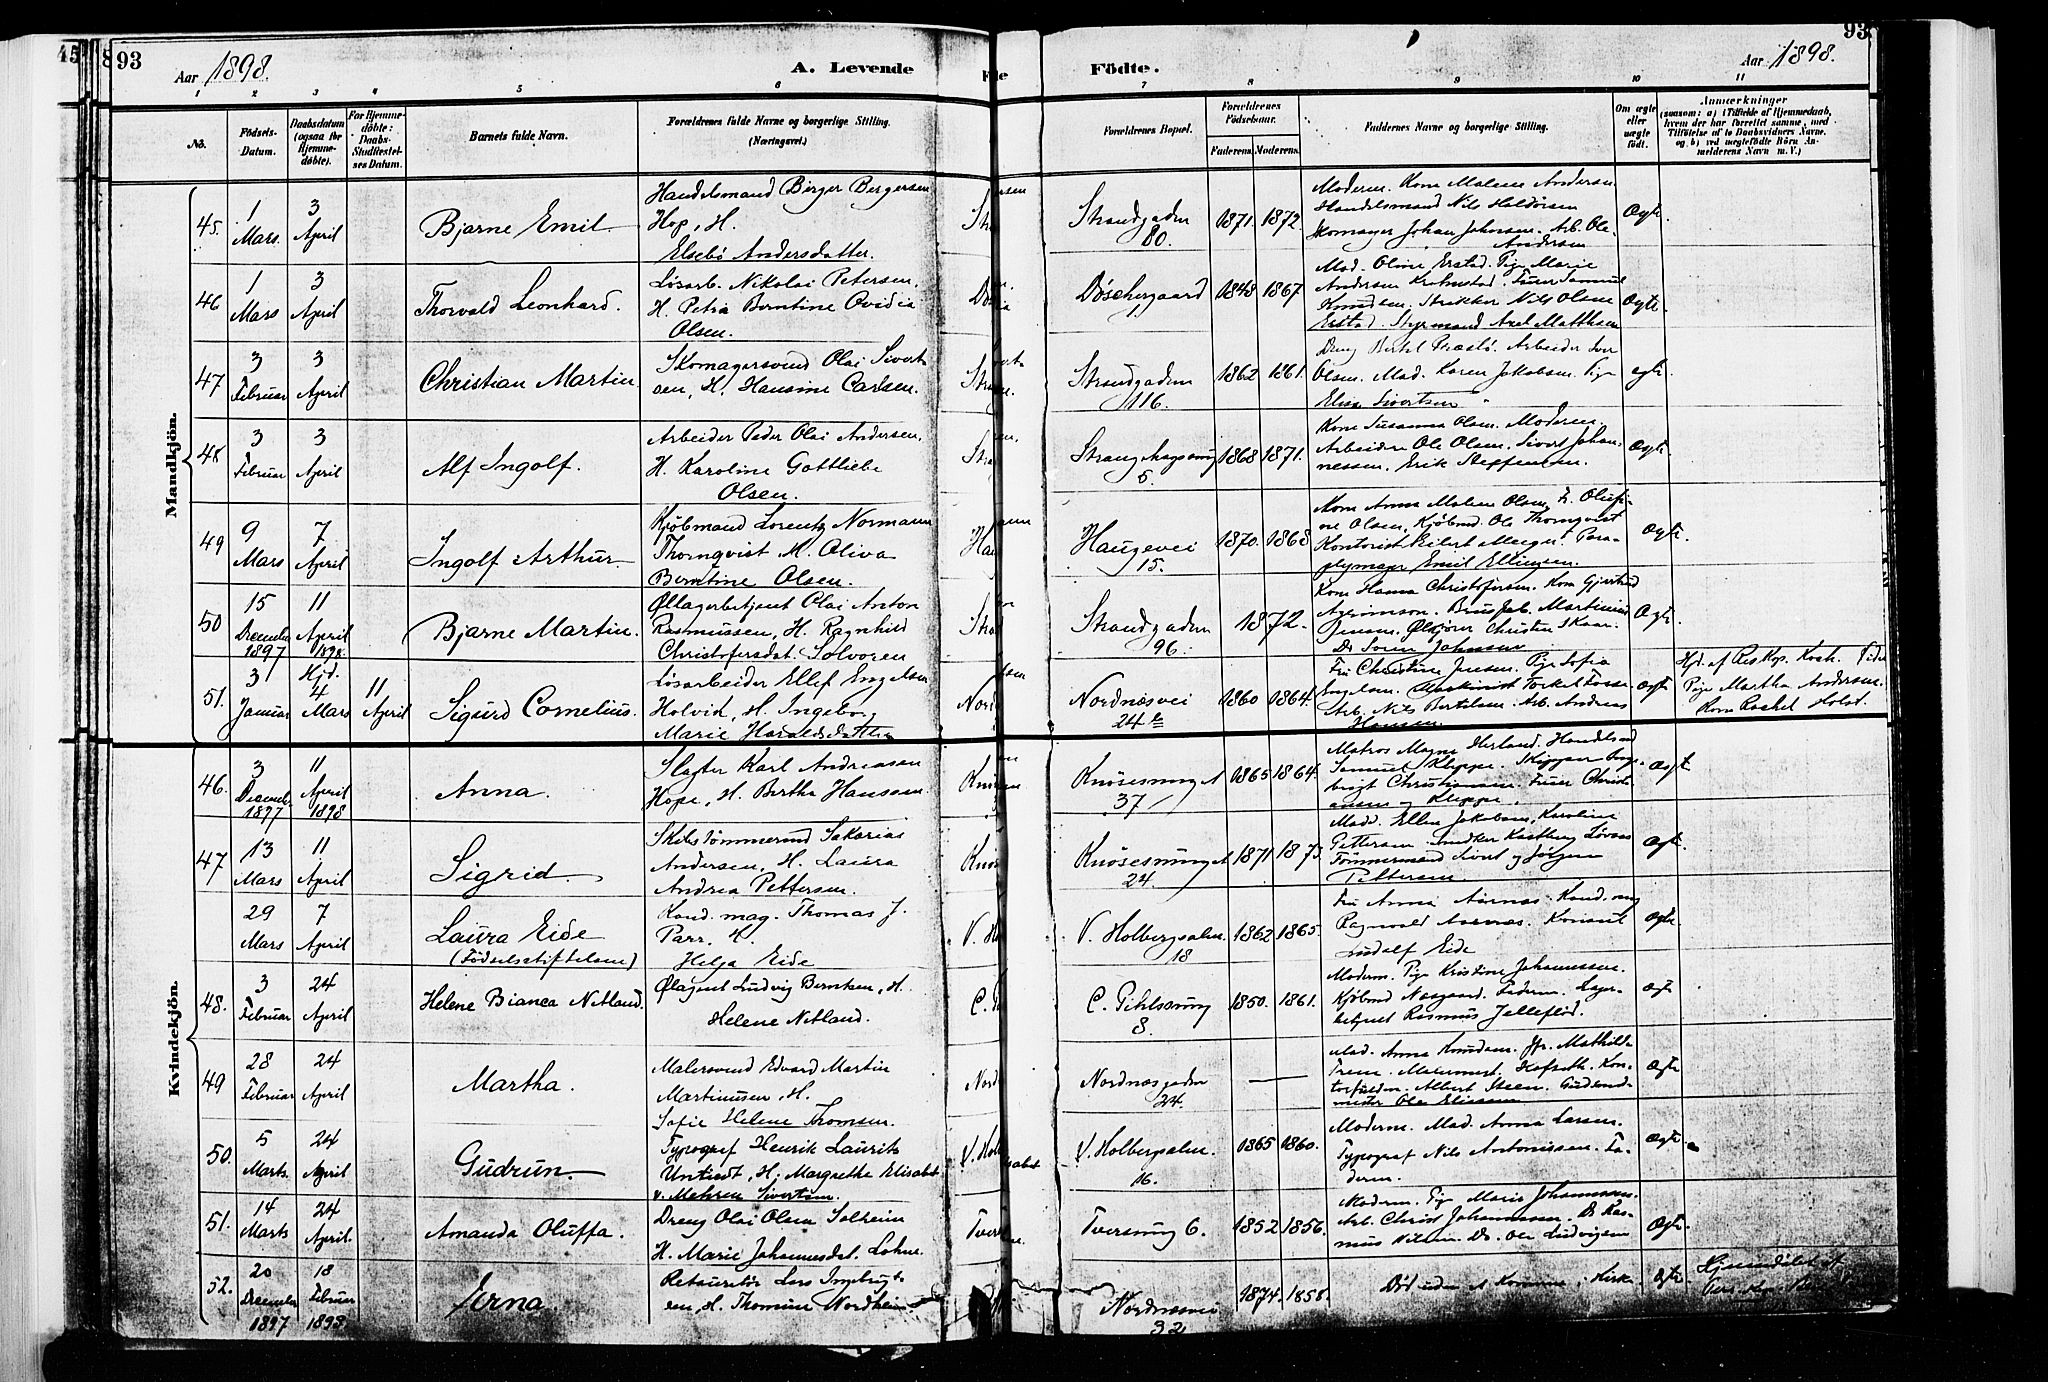 45
893
93
Aar 1898.
A. Levende
Fødte.
Aar 1898.
1 2 3 4 5 6 7 8 9 10 11
No.
Fødsels-
Datum.
Daabsdatum
(ogsaa for
Hjemme-
døbte).
For Hjemme-
døbte:
Daabs-
Stadfæstel-
ses Datum.
Barnets fulde Navn.
Forældrenes fulde Navne og borgerlige Stilling.
(Næringsvei.)
Forældrenes Bopæl.
Forældrenes
Fødselsaar.
Faderens.
Moderens.
Faddernes Navne og borgerlige Stilling.
Om ægte
eller
uægte
født.
Anmærkninger
(saasom: a) i Tilfælde af Hjemmedaab,
hvem der har forrettet samme, med
Tilføielse af to Daabsvidners Navne,
og b) ved uægtefødte Børn An-
melderens Navn m. V.)
Mandkjön.
45. 1 Mars. 3 April
Bjarne Emil
Handelsmand Birger Bergersen
Hop, H.
Elsebø Andersdatter.
Strandgaden
80.
1871. 1872.
Moderen. Kone Malene Andersen
Handelsmand Nils Haldorsen
Skomager Johan Johnsen. Arb. Ole
Andersen
Ægte.
46 1 Mars 3 April
Thorvald Leonhard.
Løsarb. Nikolai Petersen,
H. Petra Berntine Ovidia
Olsen.
Døschergaard
1848 1867
Mad. Oline Erstad. Pige Marie
Nils Olsen
Erstad. Styrmand Axel Matthesen
Ægte.
47 3 Februar 3 April
Christian Martin
Skomagersvend Olai Sivert-
sen, H. Hansine Carlsen.
Strandgaden
116.
1862 1861.
Arbeider Iver
Olsen. Mad. Karen Jakobsen. Pige
Elisa Sivertsen
Ægte
48 3 Februar 3 April
Alf Ingolf.
Arbeider Peder Olai Andersen.
H. Karoline Gottliebe
Olsen.
5.
1868 1871.
Kone Susanna Olsen. Moderen.
Arbeidere Ole Olsen. Sivert Johan-
nessen. Erik Steffensen.
Ægte.
49 9 Mars 7 April
Ingolf Arthur
Kjøbmand Lorentz Normann
Thornqvist H. Oliva
Berntine Olsen.
Haugevei
15.
1870. 1868
Kone Anna Malene Olsen, F. Olufi-
ne Olsen, Kjøbmd. Ole Thornqvist
Kontorist Eilert Meyer. Para-
plymager Emil Ellingsen.
Ægte.
50 15 December 1897 11 April 1898.
Bjarne Martin.
Øllagerbetjent Olai Anton
Rasmussen, H. Ragnhild
Christofersdat. Solvoren
Strandgaden
96.
1872.
Kone Hanna Christofersen. Kone Gjertrud
Martinius
Jensen. Ølkjører Christen Skaar.
Do Søren Johnsen
Ægte.
51. 3 Januar Hjd. 4 Mars 11 April
Sigurd Cornelius.
Løsarbeider Ellef Engelsen
Holvid, H. Ingeborg
Marie Haraldsdatter
Nordnæsvei
24
1860 1864.
Frk Christine Jensen. Pige Sofia
Engelsen. Maskinist Torkel Fosse.
Arb. Nils Bertelsen. Arb. Andreas
Hansen.
Ægte
Hjd. af Res. Kap. Koch.
Pige Martha Andersen.
Kone Rachel Holst.
Kvindekjön.
46. 3 Decemb. 1897 11 April 1898
Anna.
Slagter Karl Andreasen
Hope, H. Bertha Hanssen
Knøsesmug
37
1865 1864.
Matros Magne Herland. Handelsmd
Samuel Kleppe. Skipper Inge-
brigt Christiansen. Fruer Christi-
ansen og Kleppe.
Ægte
47 13 Mars 11 April
Sigrid.
Skibstømmermd Sakarias
Andersen, H. Laura
Andrea Pettersen.
Knøsesmug
24.
1871 1873.
Madd. Ellen Jakobsen, Karoline
Pettersen.
Tømmermænd Sivert og Jørgen
Pettersen
Ægte.
29 Mars 7 April
Laura Eide
(Fødselsstiftelsen)
Kand. mag. Thomas J.
Parr. H.
Helga Eide
V. Holbergsalm.
18
1862 1865.
Fru Anna Aarnæs. Kand. mag
Ragnvald Aarnæs. Konsul
Ludolf Eide
Ægte.
48. 3 Februar 24 April
Helene Bianca Netland.
Ølagent Ludvig Berntsen, H.
Helene Netland.
C. Pihlsmug
8.
1850. 1861.
Moderen. Pige Kristine Johannessen.
Kjøbmd Naagaard. Faderen. Lager-
betjent Rasmus Jelleflod.
Ægte
49 28 Februar 24 April
Martha.
Malersvend Edvard Martin
Martinussen, H.
Sofie Helene Thomsen.
Nordnæsgaden
24.
Mad. Anna Knudsen. Jfr. Mathilde
Malermest. Hofseth. Kon-
torfuldm. Albert Steen.
Ole Eliassen
Ægte
50. 5 Marts. 24 April
Gudrun
Typograf Henrik Laurits
Untiedt, H. Margrethe Elisabet
v. Mehren Sivertsen.
V. Holbergsalm.
16.
1865 1860.
Moderen. Mad. Anna Larsen.
Typograf Nils Antonissen. Fa-
deren.
Ægte
51. 14 Marts 24 April.
Amanda Oluffa.
Dreng Olai Olsen Solheim
H. Marie Johannesdat. Lohne
Tversmug 6.
1852 1856.
Moderen. Pige Marie Johannessen.
Arb. Christ Johannessen. Do Ras-
mus Nilsen. Do. Ole Ludvigsen
Ægte.
52. 20 December 1897 18 Februar 1898.
Jerna
Restauratør Lars Ingebrigt-
sen, H. Thomine Nordheim
Nordnæsvei
32
1874. 1858.
Død uden at komme i Kirke
Ægte.
Hjemmedøbt af